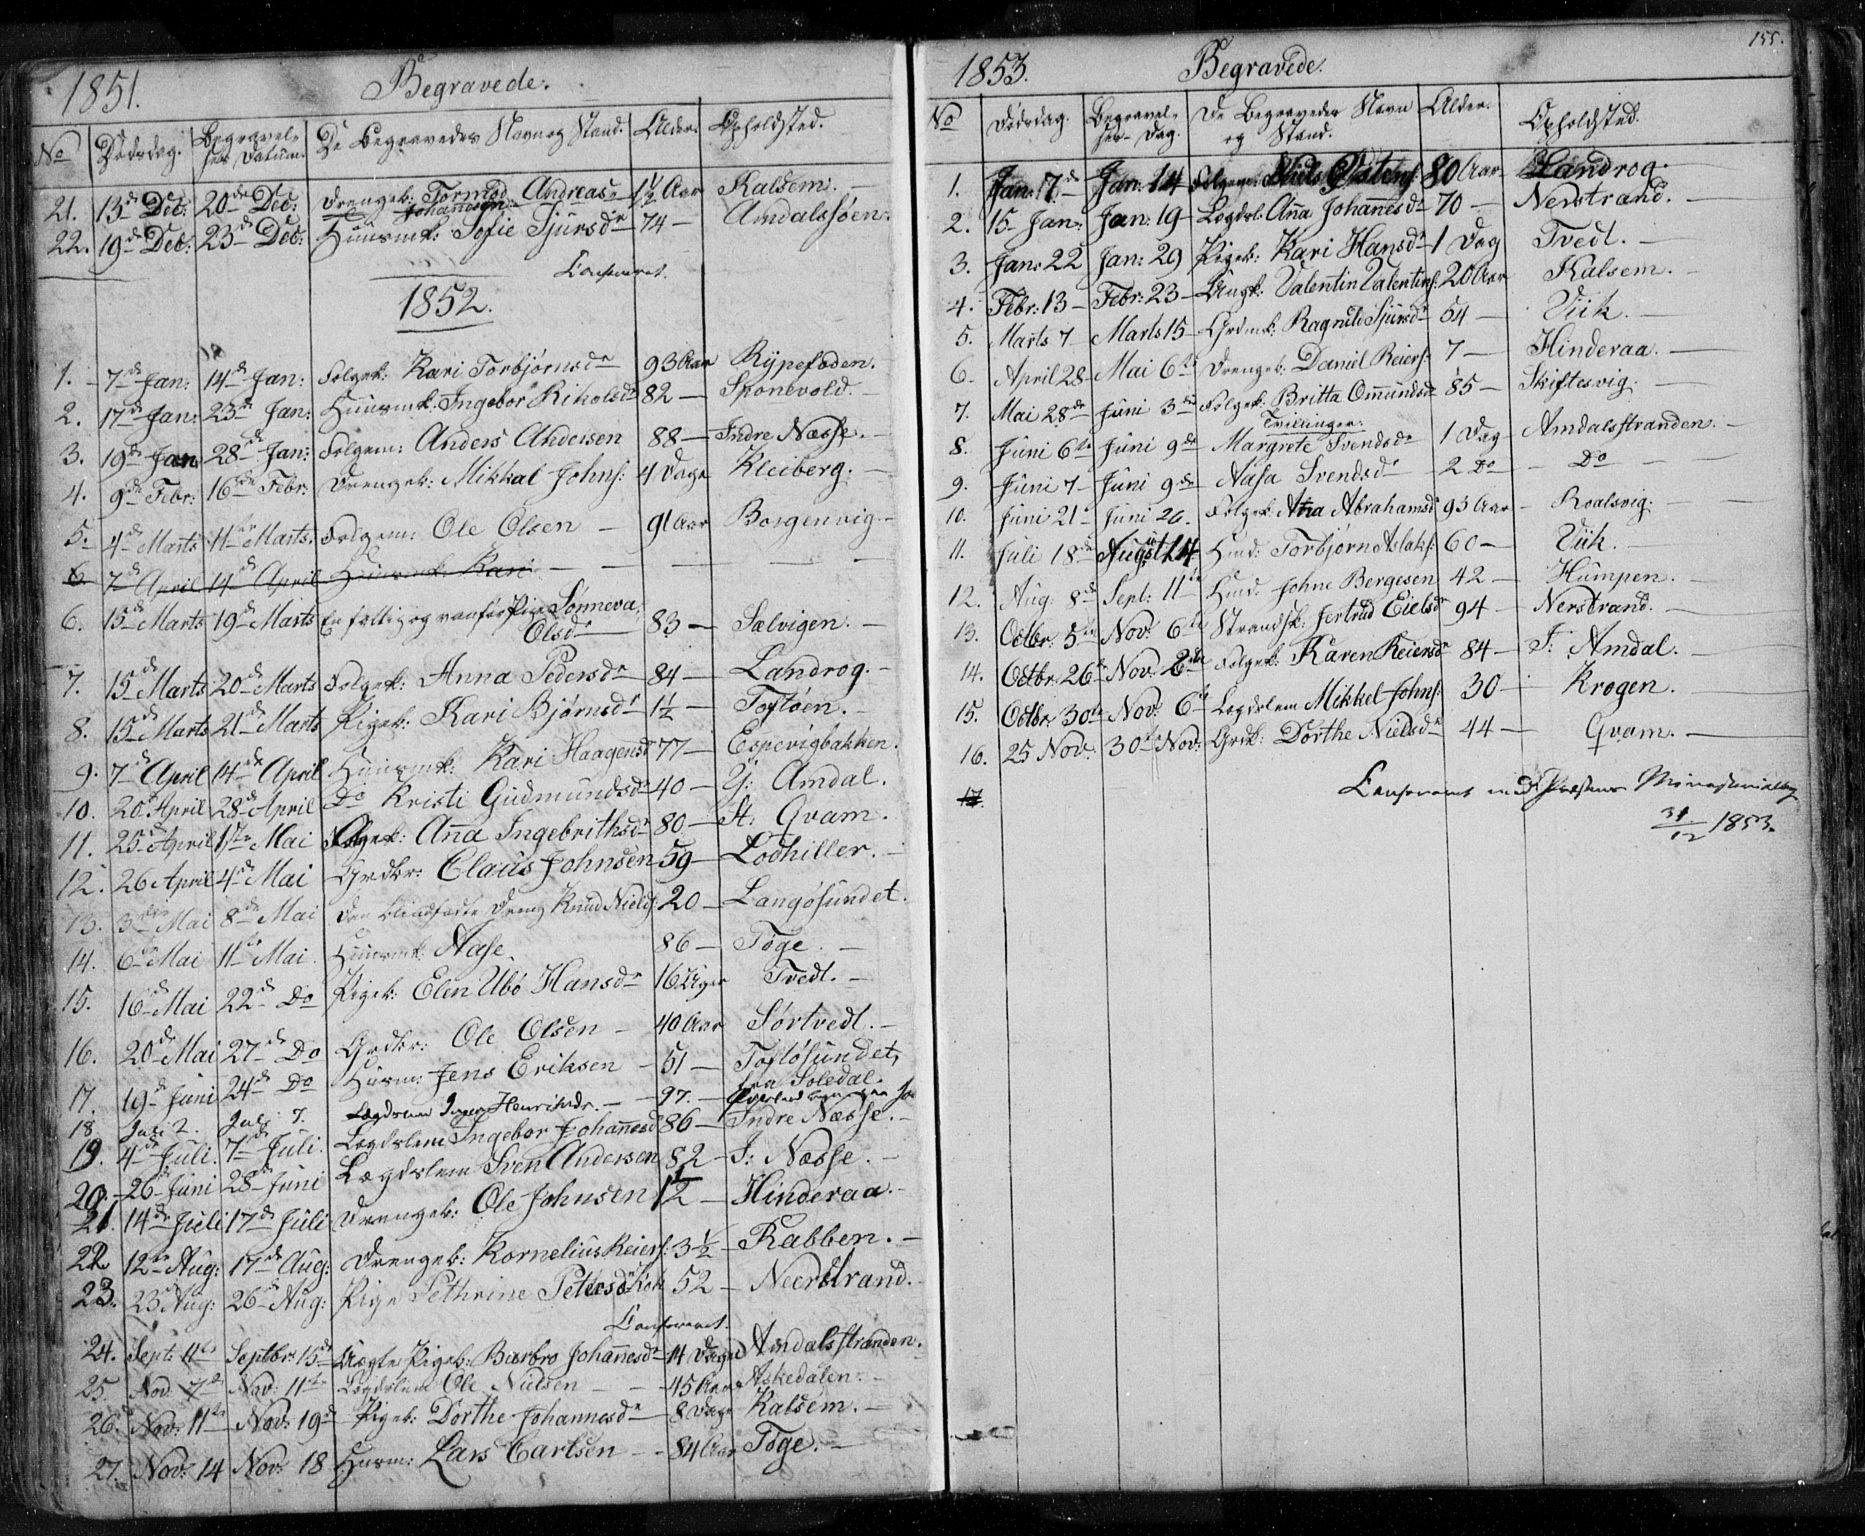 1851.
Begravede.
No Dødsdag. Begravel= De Begravedes Navn og Stand. Alder. Opholdsted.
ses Datum.
21. 13de Dec: 20de Dec: Drengeb: Tormod Andreas 1½ Aar Kalsem.
Johannesen
22. 19de Dec: 23de Dec: Huusmk: Sofie Sjursdr 74 — Amdalssøen.
Conferert.
1852.
1. 7de Jan: 14de Jan: Folgek: Kari Torbjørnsdr 93 Aar Rypefoden.
2. 17de Jan: 23de Jan: Huusmk: Ingebor Riholsdr 82 — Sponevold.
3. 19de Jan 28de Jan: Folgem: Anders Andersen 88 — Indre Næsse.
4. 9de Febr: 16de Febr: Drengeb: Mikkal Johns: 4 Dage Kleiberg.
5. 4de Marts 11te Marts. Folgem: Ole Olsen — 91 Aar Borgenvig.
6. 7de April 14de April Huusmk: Kari
6. 15de Marts 19de Marts En fattig og vanfør Pige Sønneva
Olsdr 83 — Sælvigen.
7. 15de Marts 20de Marts Folgek: Anna Pedersdr 84 — Landrog.
8. 15de Marts 21de Marts Pigeb: Kari Bjørnsdr 1½ — Toftøen.
9. 7de April 14de April Huusmk: Kari Haagensdr 77 — Espevigbakken.
10. 20de April 28de April Do Kristi Gudmundsdr 40 — Y: Amdal.
11. 25de April 1ste Mai Folgek: Ana Ingebrithsdr 80 — St. Qvam.
12. 26 April 4de Mai Grdbr: Claus Johnsen 59 — Lodhiller.
13. 3die Mai 8de Mai Den blindfødte Dreng Knud Niels: 20 — Langøsundet.
14. 6te Mai 11te Mai. Huusmk: Aase. 86 — Toge.
15. 16de Mai 22de Do Pigeb: Elen Ubø Hansdr 16 Uger Tvedt.
16. 20de Mai 27de Do Grdbr: Ole Olsen — 40 Aar Sørtvedt.
17. 19de Juni 24de Do Husm: Jens Eriksen — 51 — Toftøsundet,
18. Juli 2. Juli 7. Lægdslem Inger Henriksdr. — 97. — fra Soledal.
19. 4de Juli. 7de Juli. Lægdslem Ingebor Johannesd 86 — Indre Næsse.
20. 26de Juni 28de Juni Lægdslem Sven Andersen 82 — I: Næsse.
21. 14de Juli 17de Juli Drengeb: Ole Johnsen ½ — Hinderaa.
22. 12te Aug: 17de Aug: Drengeb: Kornelius Reiers: 3½ — Rabben.
23. 23de Aug: 26de Aug: Pige Sethrine Petersdr Kok 52 — Neerstrand.
Conferert.
24. Sept: 11te Septbr: 15de Uægte Pigeb: Barbro Johannesdr 14 Dage Amdalsstranden.
25. Nov: 7de Nov: 11te Lægdslem Ole Nielsen — 45 Aar Askedalen.
26. Nov: 11te Nov: 19de Pigeb: Dorthe Johannesdr 8 Dage Kalsem.
27. Nov: 14 Nov: 18 Husm: Lars Carlsen — 84 Aar Toge.
155.
1853.
Begravede.
No Dødsdag. Begravel= De Begravedes Navn Alder. Opholdsted.
ses Dag. og Stand.
1. Jan: 7de Jan: 14 Folgem: Niels Østens: 80 Aar Landrog.
2. 15 Jan: Jan: 19 — Lægdsl: Ana Johannesdr 70 — Nerstrand.
3. Jan: 22 Jan: 29 Pigeb: Kari Hansdr 1 Dag Tvedt.
4. Febr: 13 — Febr: 23 — Ungk: Valentin Valentins: 20 Aar Kalsem.
5. Marts 7 Marts 15 — Grdmk: Ragnild Sjursdr 54 — Viik.
6. April 28 — Mai 6te Drengeb: Daniel Reiers: 7 — Hinderaa.
7. Mai 28de Juni 3die Folgek: Britta Omundsdr 85 — Skiftesvig.
Tvillinger:
8. Juni 6te Juni 9de Margrete Svendsdr 1 Dag Amdalsstranden.
9. Juni 7 — Juni 9de Aasa Svendsdr 2 Do Do
10. Juni 21 — Juni 26. Folgek: Ana Abrahamsd 93 Aar Roalsvig.
11. Juli 18de August 14 Husm: Torbjørn Aslaks: 60 — Viik.
12. Aug: 8de Sept: 11te Husm: Johne Bergesen 42 — Humpen.
13. Octbr. 5te Nov: 6te Strandsk: Jertrud Eielsdr 94 — Nerstrand.
14. Octbr: 26de Nov: 2den Folgek: Karen Reiersdr 84 — I: Amdal.
15. Octbr 30te Nov: 6te Lægdslem Mikkel Johns: 30 — Krogen.
16. 25 Nov. 30te Nov: Grdk: Dorthe Nielsdr 44 — Qvam.
17.
Confereret med Præstens Ministerialbog
31/12 1853.